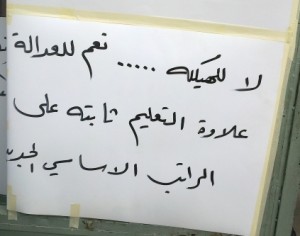 لا للهيكله ..... نعم للعدالة
علاوة التعليم ثابته على
الراتب الاساسي الجديد